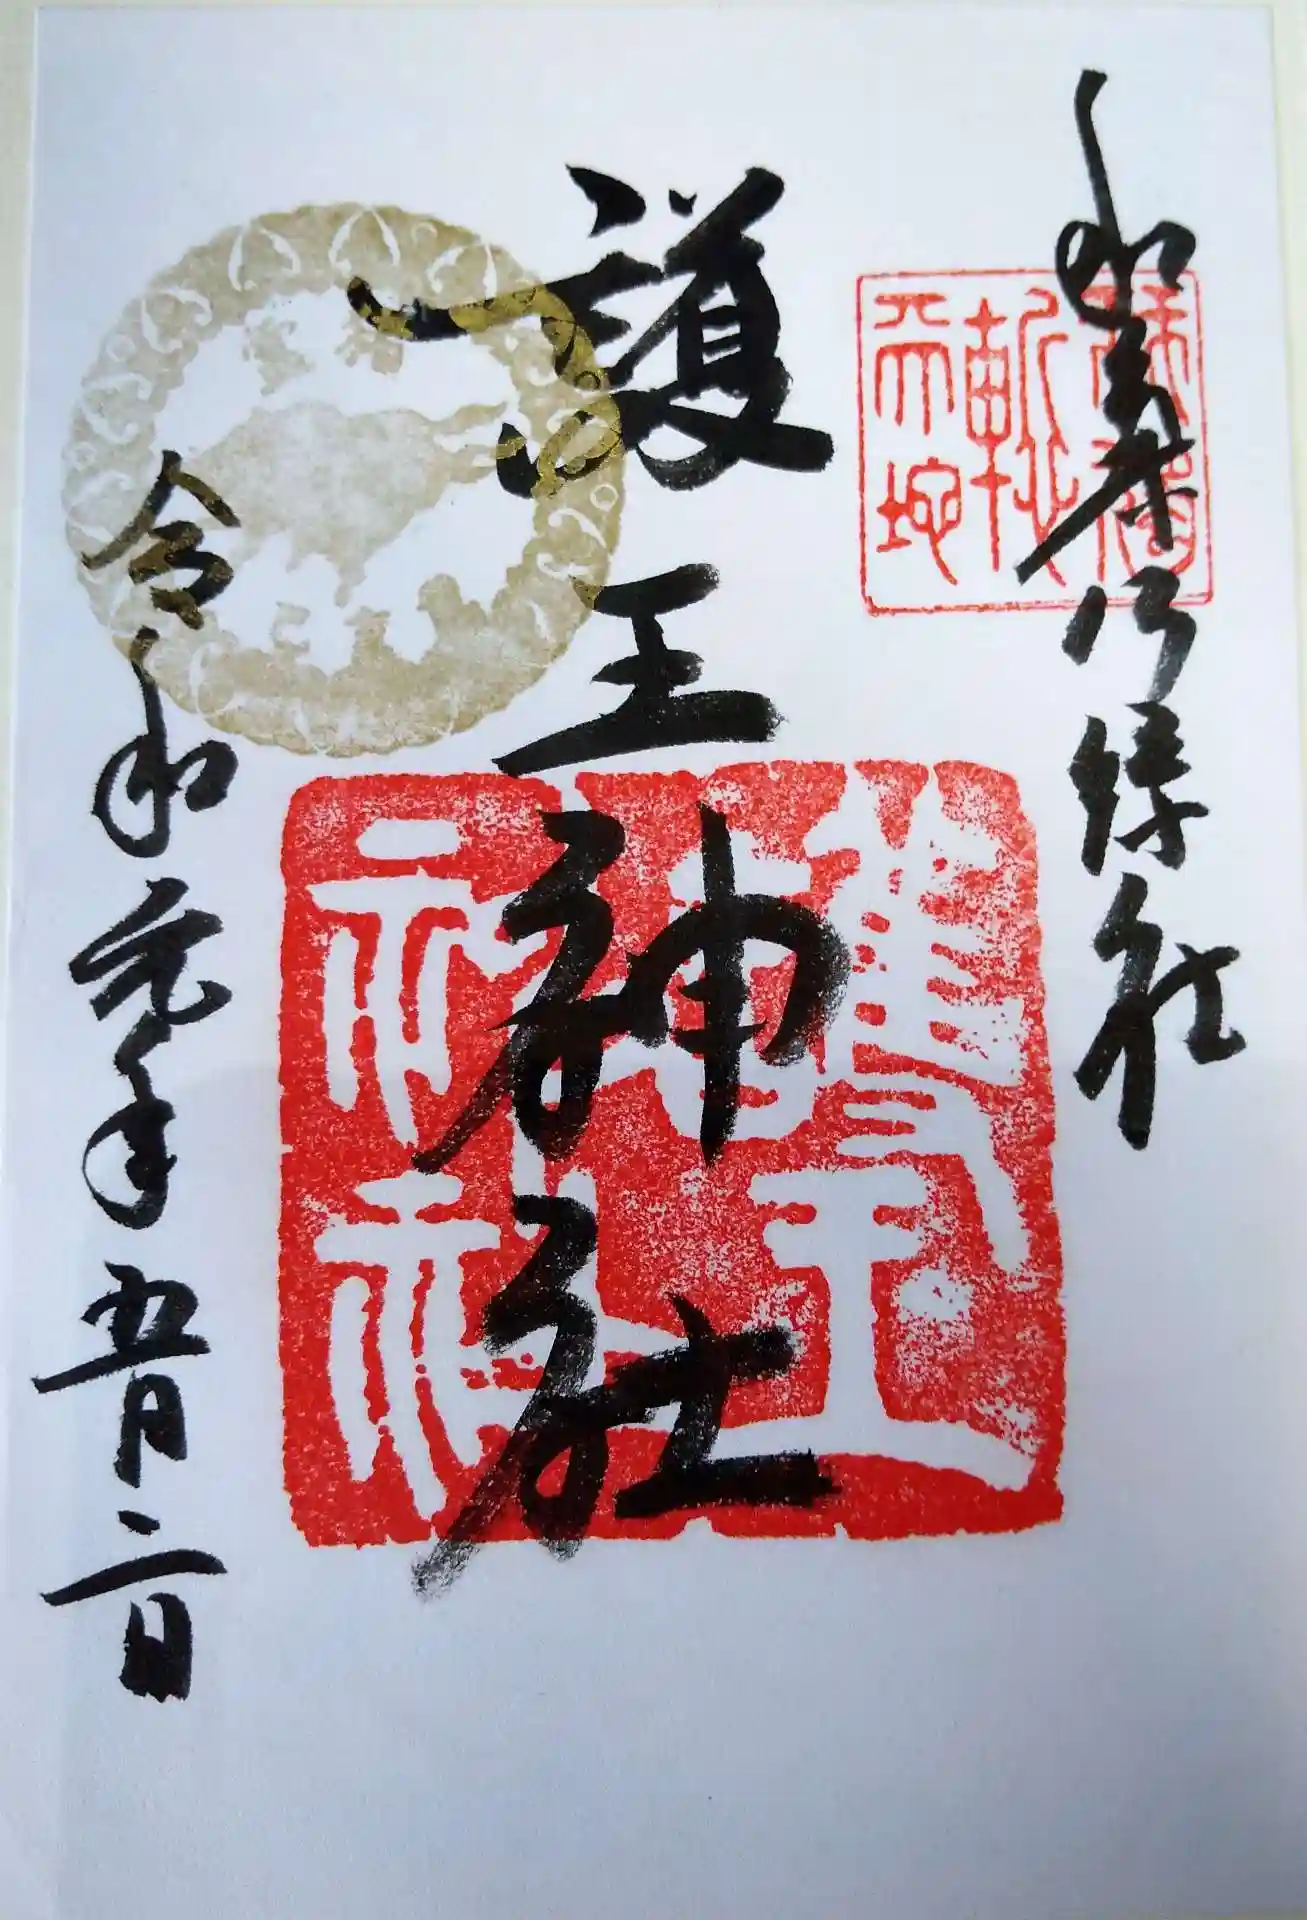 和氣公社
護王神社
護王
神社
令和元年五月二日